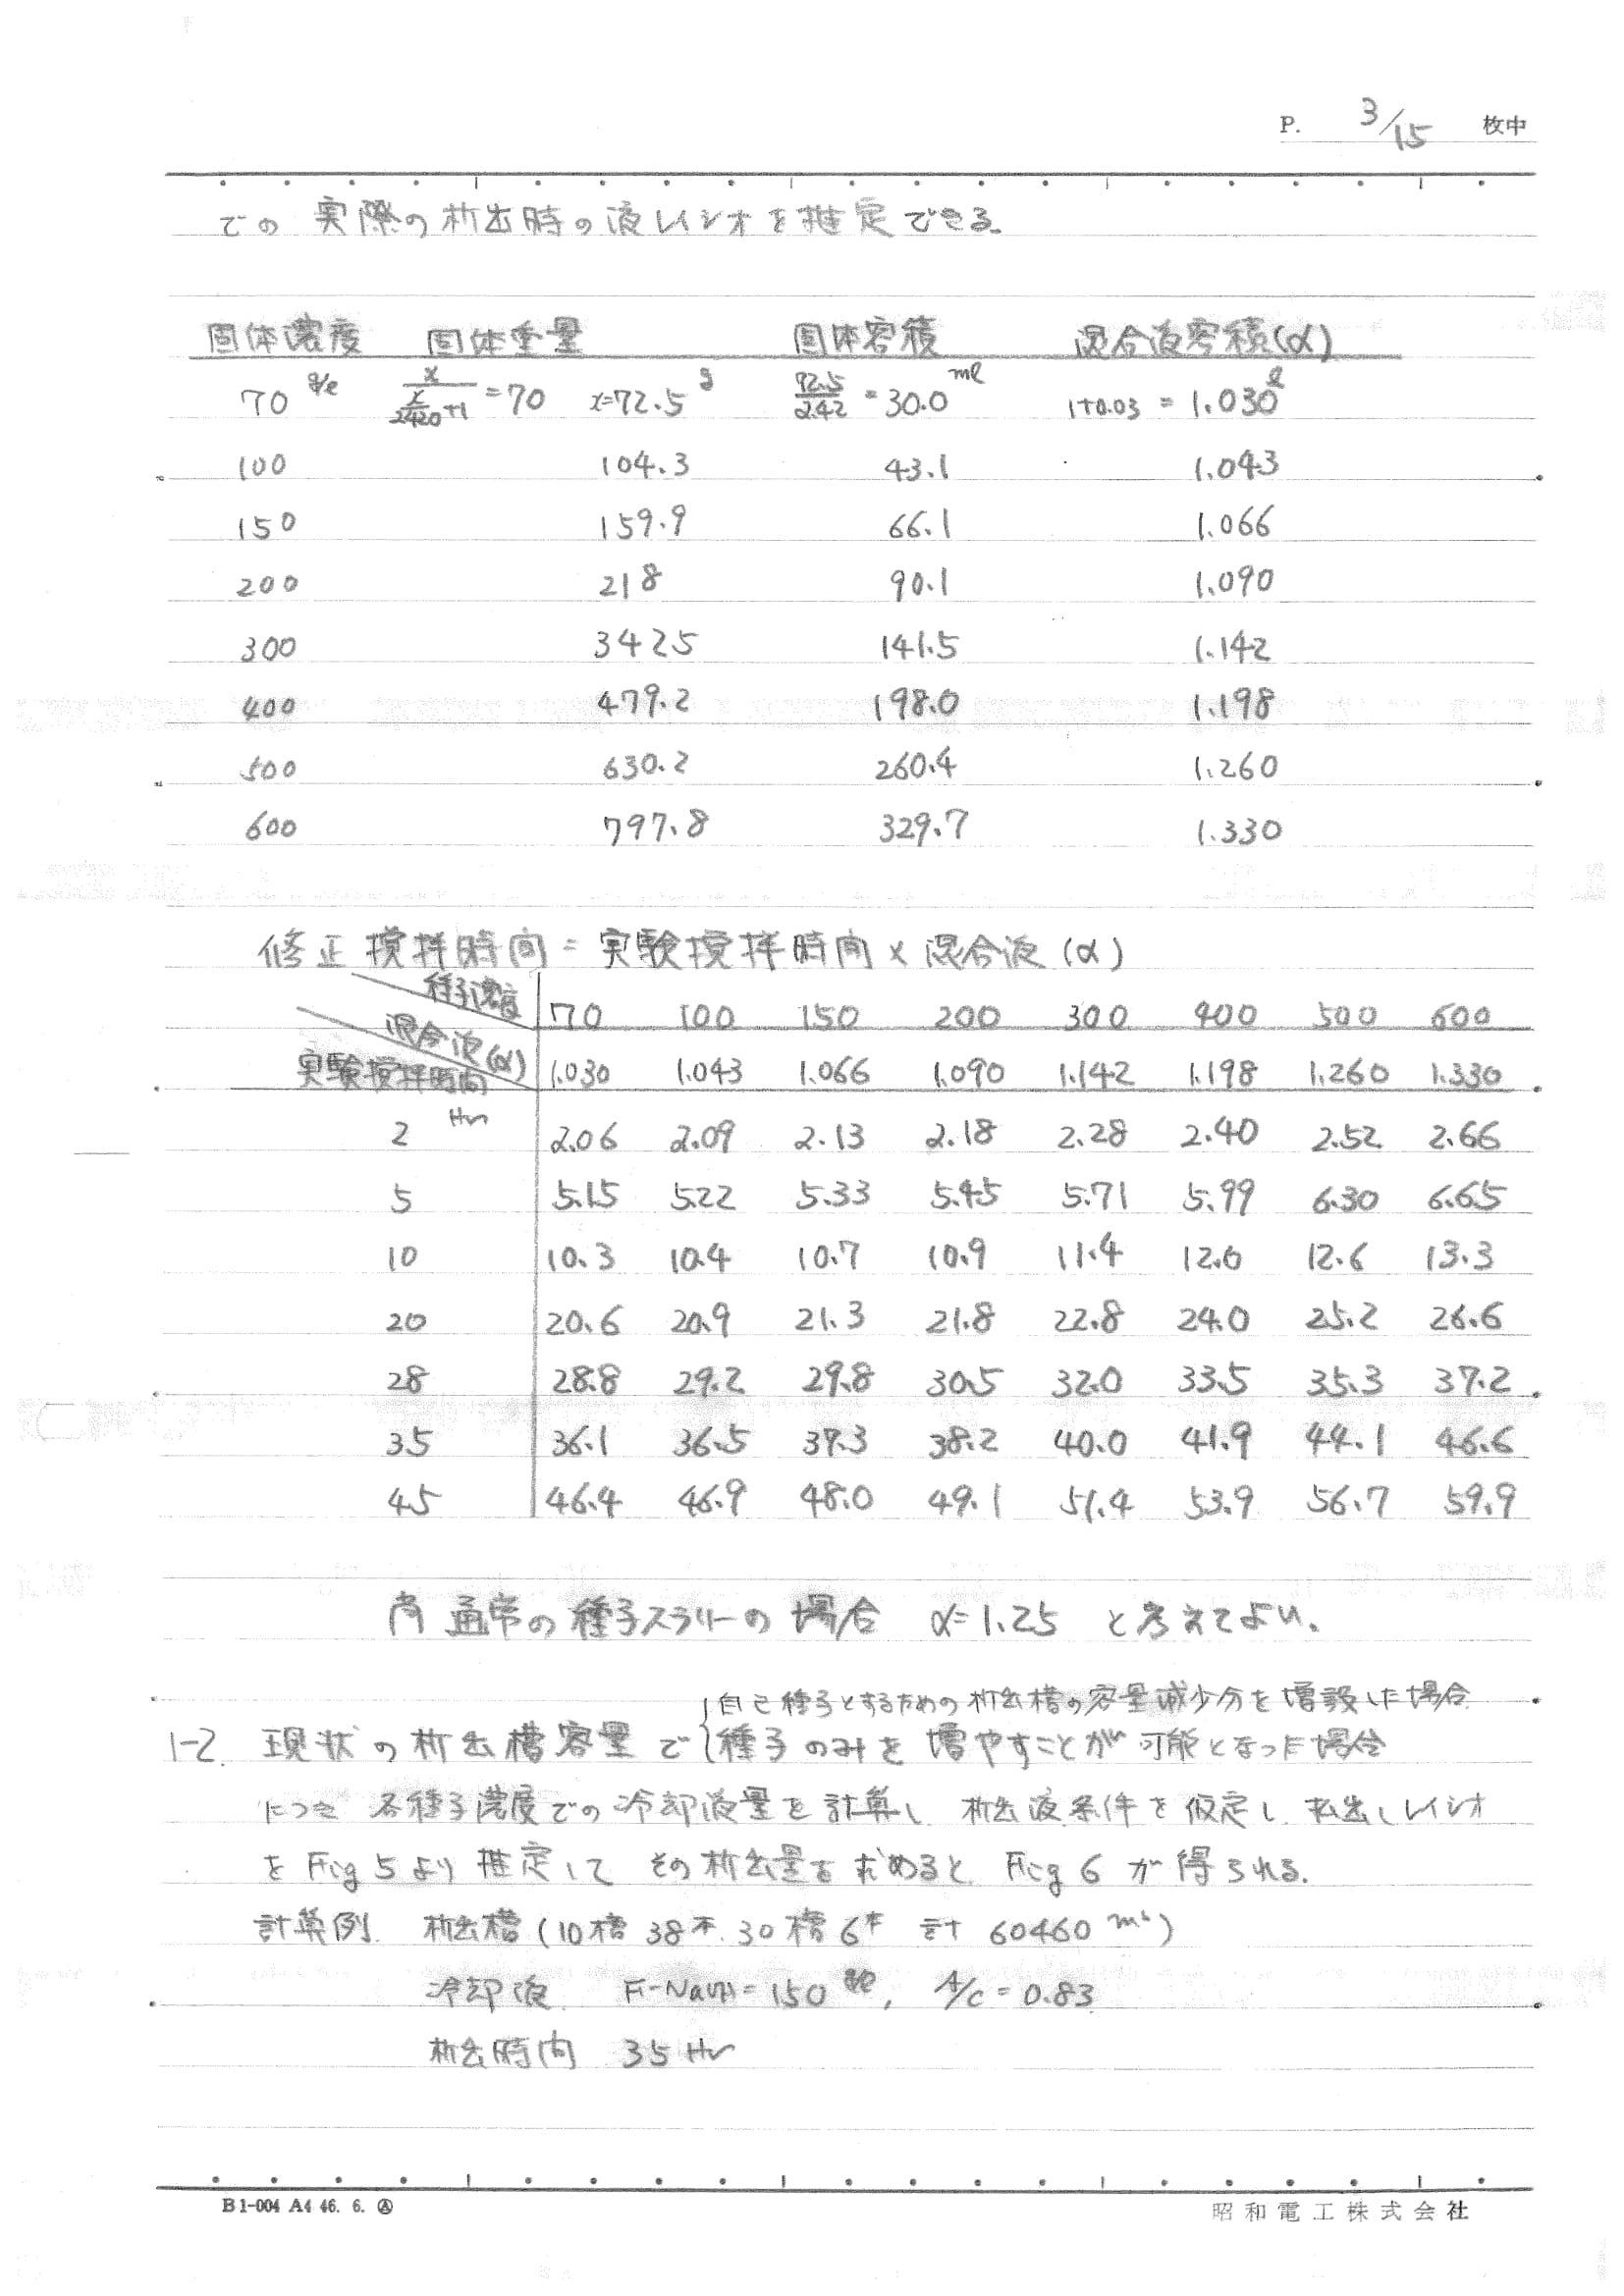 P. 3/15 枚中
での 実際の析出時の液レイシオを推定できる。
固体濃度 固体重量 固体容積 混合液容積(α)
70 g/l x/(x/2420+1) =70 x=72.5 g 72.5/2.42 = 30.0 ml 1+0.03 = 1.030 l
100 104.3 43.1 1.043
150 159.9 66.1 1.066
200 218 90.1 1.090
300 342.5 141.5 1.142
400 479.2 198.0 1.198
500 630.2 260.4 1.260
600 797.8 329.7 1.330
修正撹拌時間 = 実験撹拌時間 × 混合液 (α)
種子濃度 70 100 150 200 300 400 500 600
混合液(α) 1.030 1.043 1.066 1.090 1.142 1.198 1.260 1.330
実験撹拌時間
2 Hr 2.06 2.09 2.13 2.18 2.28 2.40 2.52 2.66
5 5.15 5.22 5.33 5.45 5.71 5.99 6.30 6.65
10 10.3 10.4 10.7 10.9 11.4 12.0 12.6 13.3
20 20.6 20.9 21.3 21.8 22.8 24.0 25.2 26.6
28 28.8 29.2 29.8 30.5 32.0 33.5 35.3 37.2
35 36.1 36.5 37.3 38.2 40.0 41.9 44.1 46.6
45 46.4 46.9 48.0 49.1 51.4 53.9 56.7 59.9
尚 通常の種子スラリーの場合 α=1.25 と考えてよい。
自己種子とするための析出槽の容量減少分を増設した場合
1-2. 現状の析出槽容量で 種子のみを増やすことが可能となった場合
につき 各種子濃度での冷却液量を計算し 析出液条件を仮定し 払出しレイシオ
を Fig 5より推定して その析出量を求めると Fig 6 が得られる。
計算例. 析出槽 (10槽 38本. 30槽 6本 計 60460 m³)
冷却液 F-NaOH = 150 g/l, A/C = 0.83
析出時間 35 Hr
B1-004 A4 46. 6. Ⓐ
昭和電工株式会社